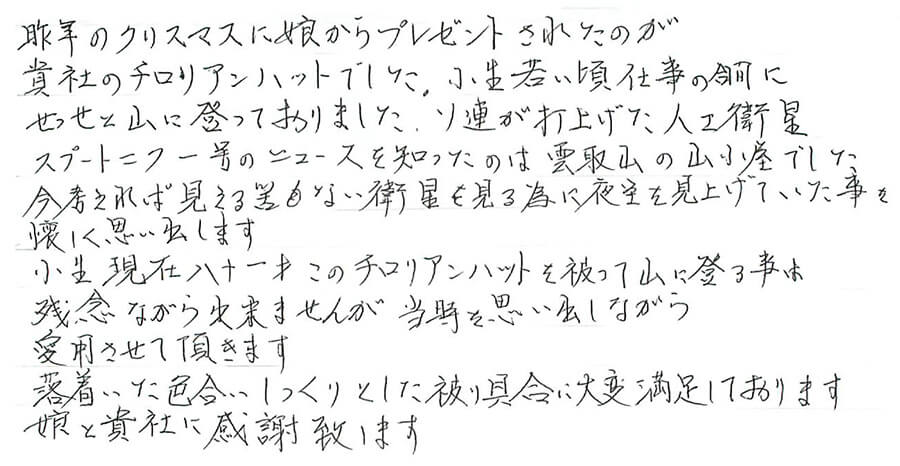 昨年のクリスマスに娘からプレゼントされたのが
貴社のチロリアンハットでした。小生若い頃仕事の合間に
せっせと山に登っておりました。ソ連が打上げた人工衛星
スプートニク一号のニュースを知ったのは雲取山の山小屋でした
今考えれば見える筈もない衛星を見る為に夜空を見上げていた事を
懐しく思い出します
小生現在八十一才このチロリアンハットを被って山に登る事は
残念ながら出来ませんが当時を思い出しながら
愛用させて頂きます
落着いた色合いしっくりとした被り具合に大変満足しております
娘と貴社に感謝致します